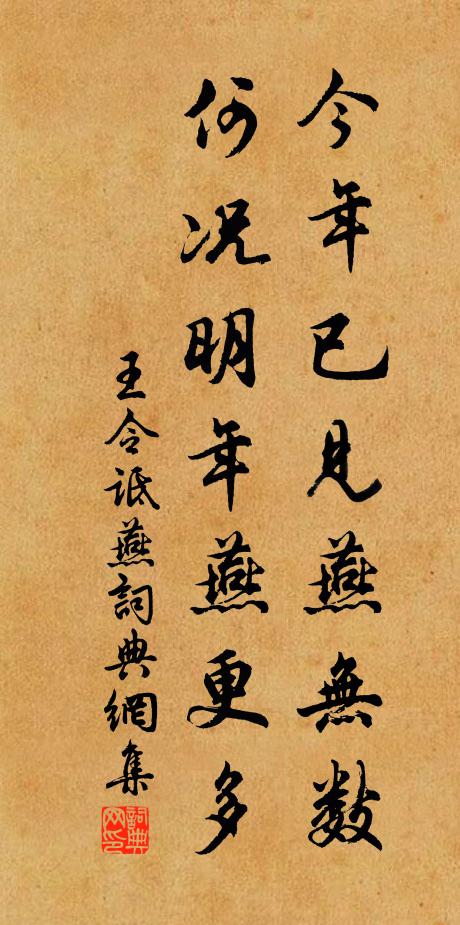 今年已見燕無数
何况明年燕更多
王令诋燕詞典網集
詞典网印